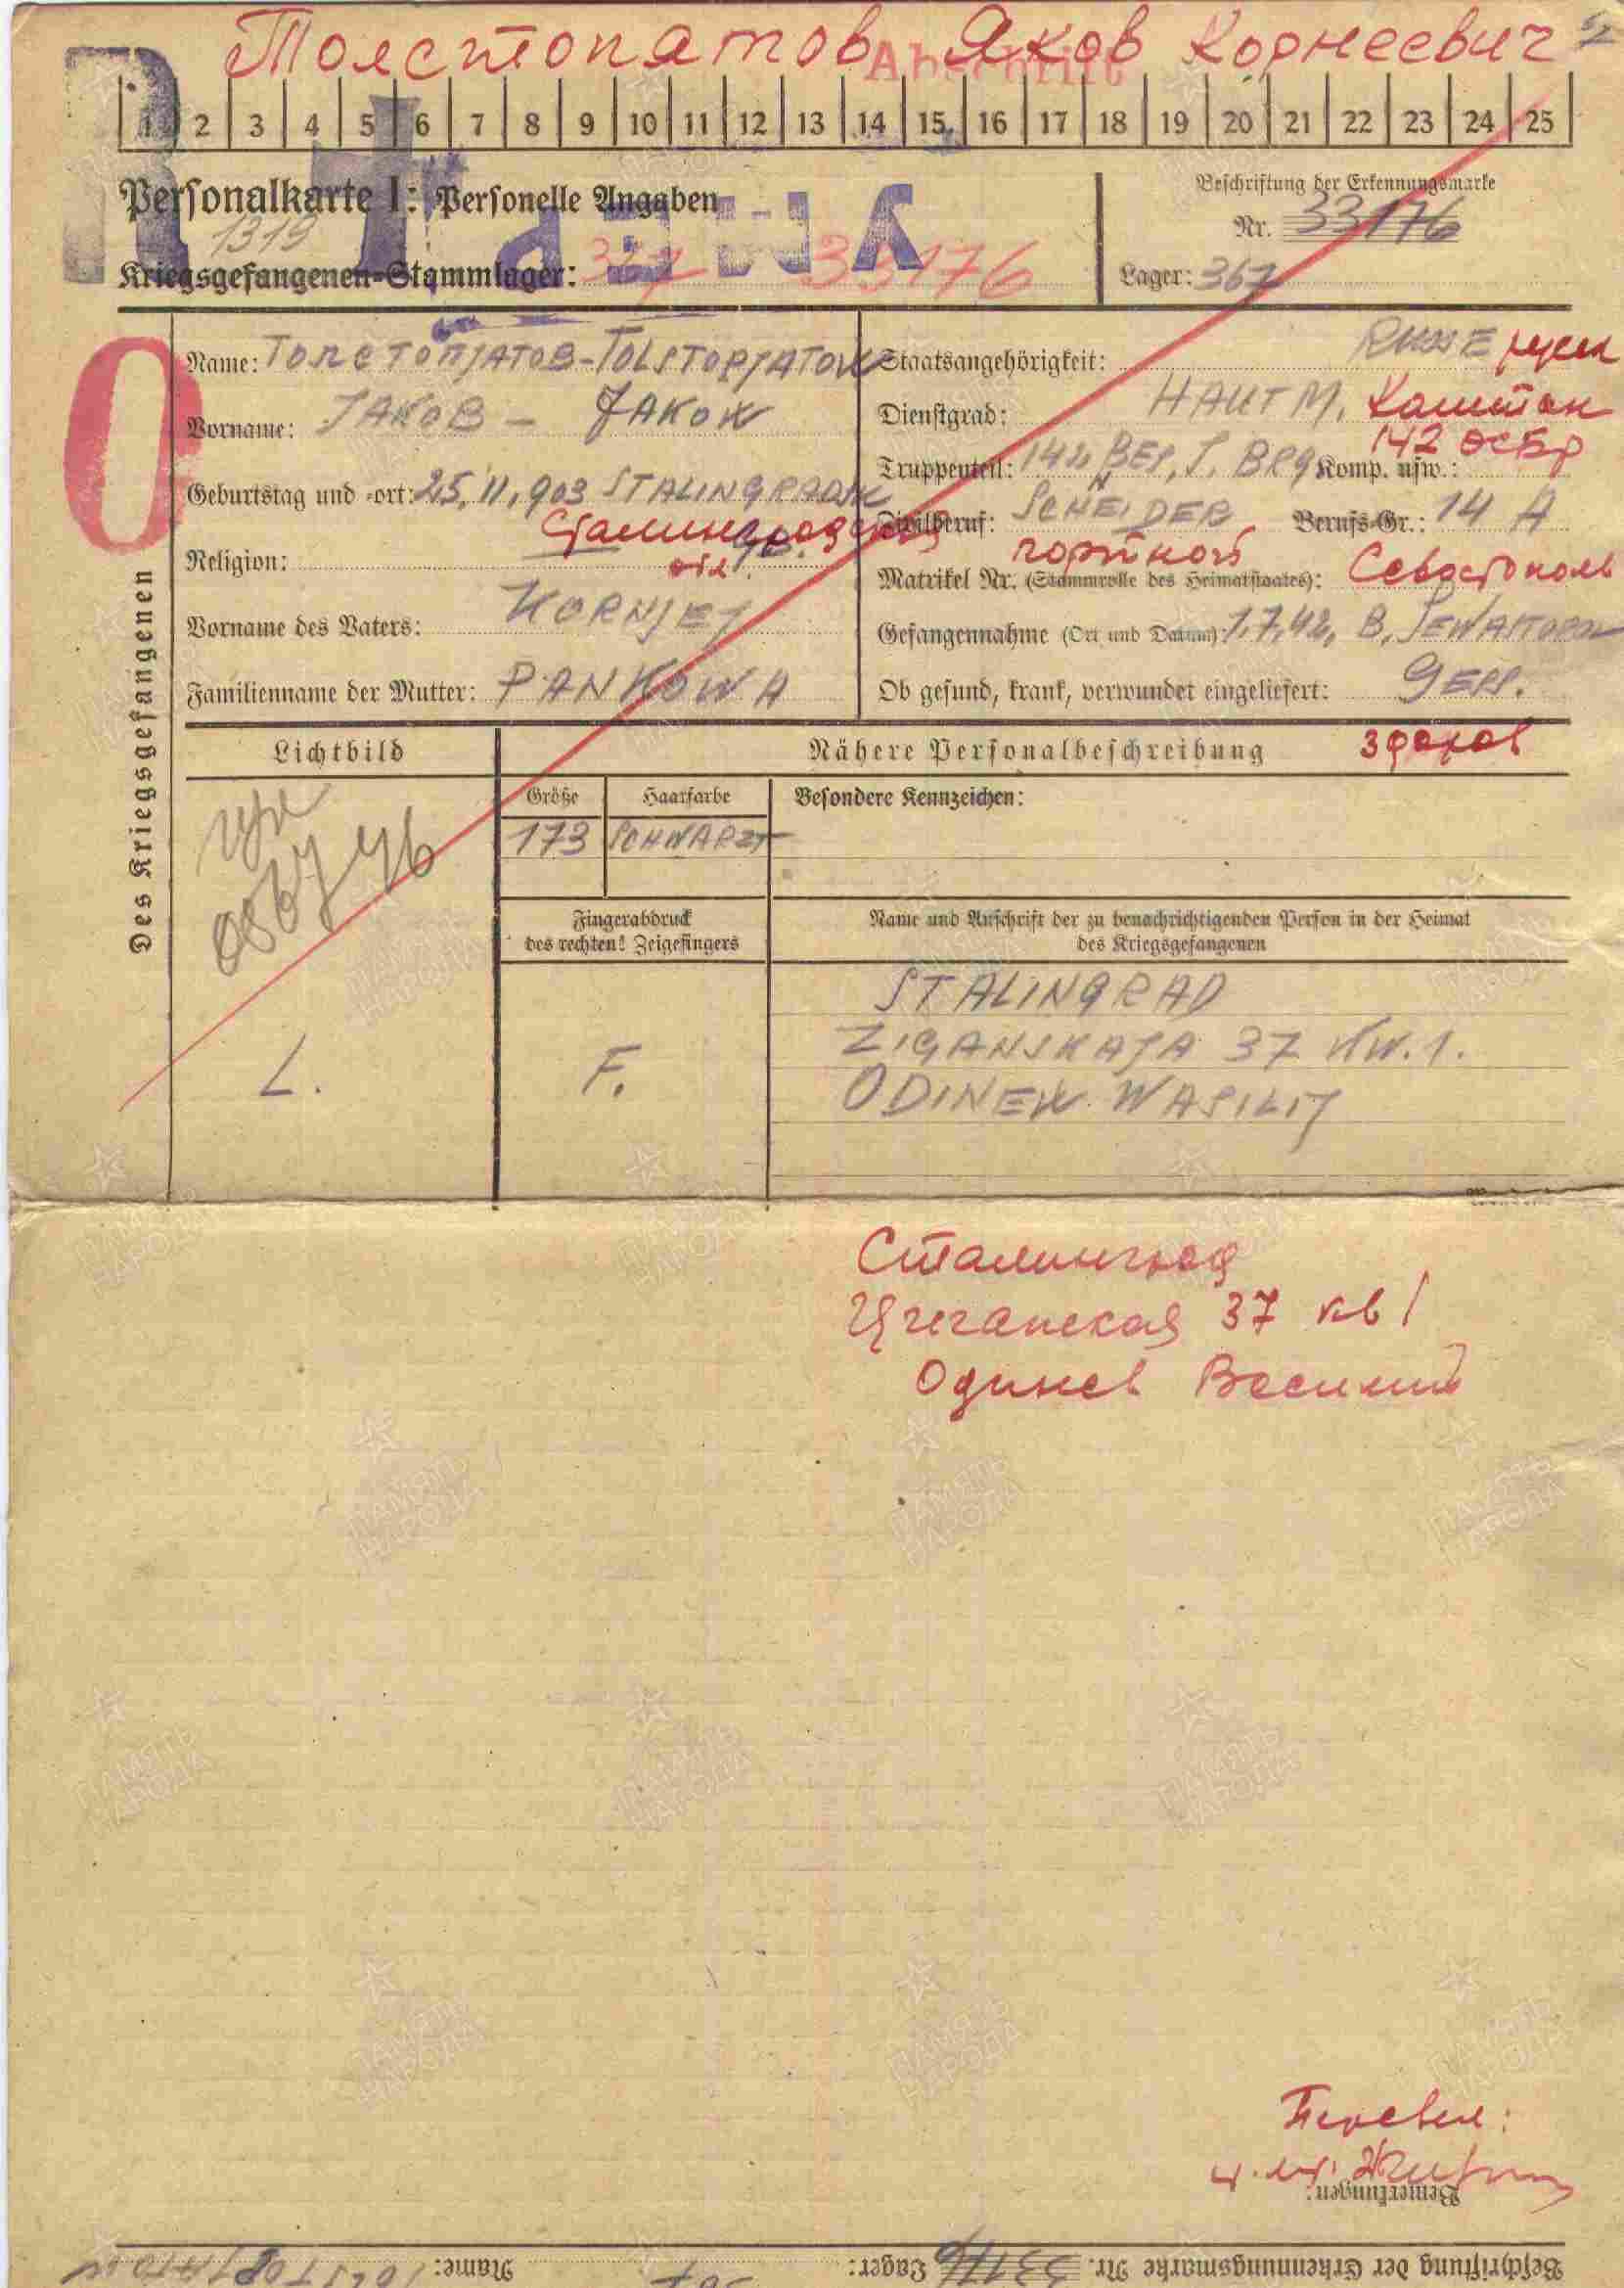 Толстопятов Яков Корнеевич
Abschrift
1 2 3 4 5 6 7 8 9 10 11 12 13 14 15 16 17 18 19 20 21 22 23 24 25
УМЕР
Personalkarte I: Personelle Angaben
1319
Kriegsgefangenen-Stammlager: 327 33176
Beschriftung der Erkennungsmarke
Nr. 33176
Lager: 367
O
Des Kriegsgefangenen
Name: ТОЛСТОПJАТОВ-TOLSTOPJATOW
Vorname: JАКОВ - JAKOW
Geburtstag und -ort: 25.11.903 STALINGRADSK
Сталинградская
обл
GB.
Religion:
Vorname des Vaters: KORNJEJ
Familienname der Mutter: PANKOWA
Staatsangehörigkeit: RUSSE русск
Dienstgrad: HAUTM. Капитан
142 ОСБр
Truppenteil: 142 BES. S. BRG Komp. usw.:
Zivilberuf: SCHNEIDER Berufs-Gr.: 14 A
портной
Matrikel Nr. (Stammrolle des Heimatstaates): Севастополь
Gefangennahme (Ort und Datum): 1.7.42. B. SEWASTOPOL
Ob gesund, krank, verwundet eingeliefert: GES.
здоров
Lichtbild
Nähere Personalbeschreibung
Größe Haarfarbe Besondere Kennzeichen:
173 SCHWARZ
Fingerabdruck
des rechten! Zeigefingers
Name und Anschrift der zu benachrichtigenden Person in der Heimat
des Kriegsgefangenen
L.
F.
STALINGRAD
ZIGANSKAJA 37 KW. 1.
ODINEW WASILIJ
Сталинград
Цыганская 37 кв 1
Одинев Василий
Перевел:
Bemerkungen:
Beschriftung der Erkennungsmarke Nr. 33176 Lager: Name: TOLSTOPJATOW
ПАМЯТЬ
НАРОДА